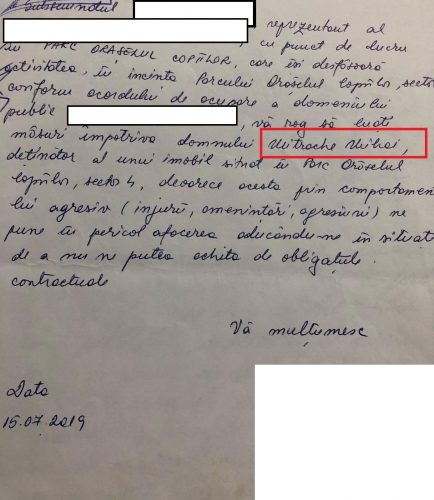 Subsemnatul
reprezentant al
în PARC ORĂȘELUL COPIILOR, cu punct de lucru
activitatea, în incinta Parcului Orășelul Copiilor, sector
conform acordului de ocupare a domeniului
public , vă rog să luați
măsuri împotriva domnului Mitrache Mihai,
deținător al unui imobil situat în Parc Orășelul
Copiilor, sector 4, deoarece acesta prin comportamen
lui agresiv (injurii, amenințări, agresiuni) ne
pune în pericol afacerea aducându-ne în situaț
de a nu ne putea achita de obligațiile
contractuale
Vă mulțumesc
Data
15.07.2019